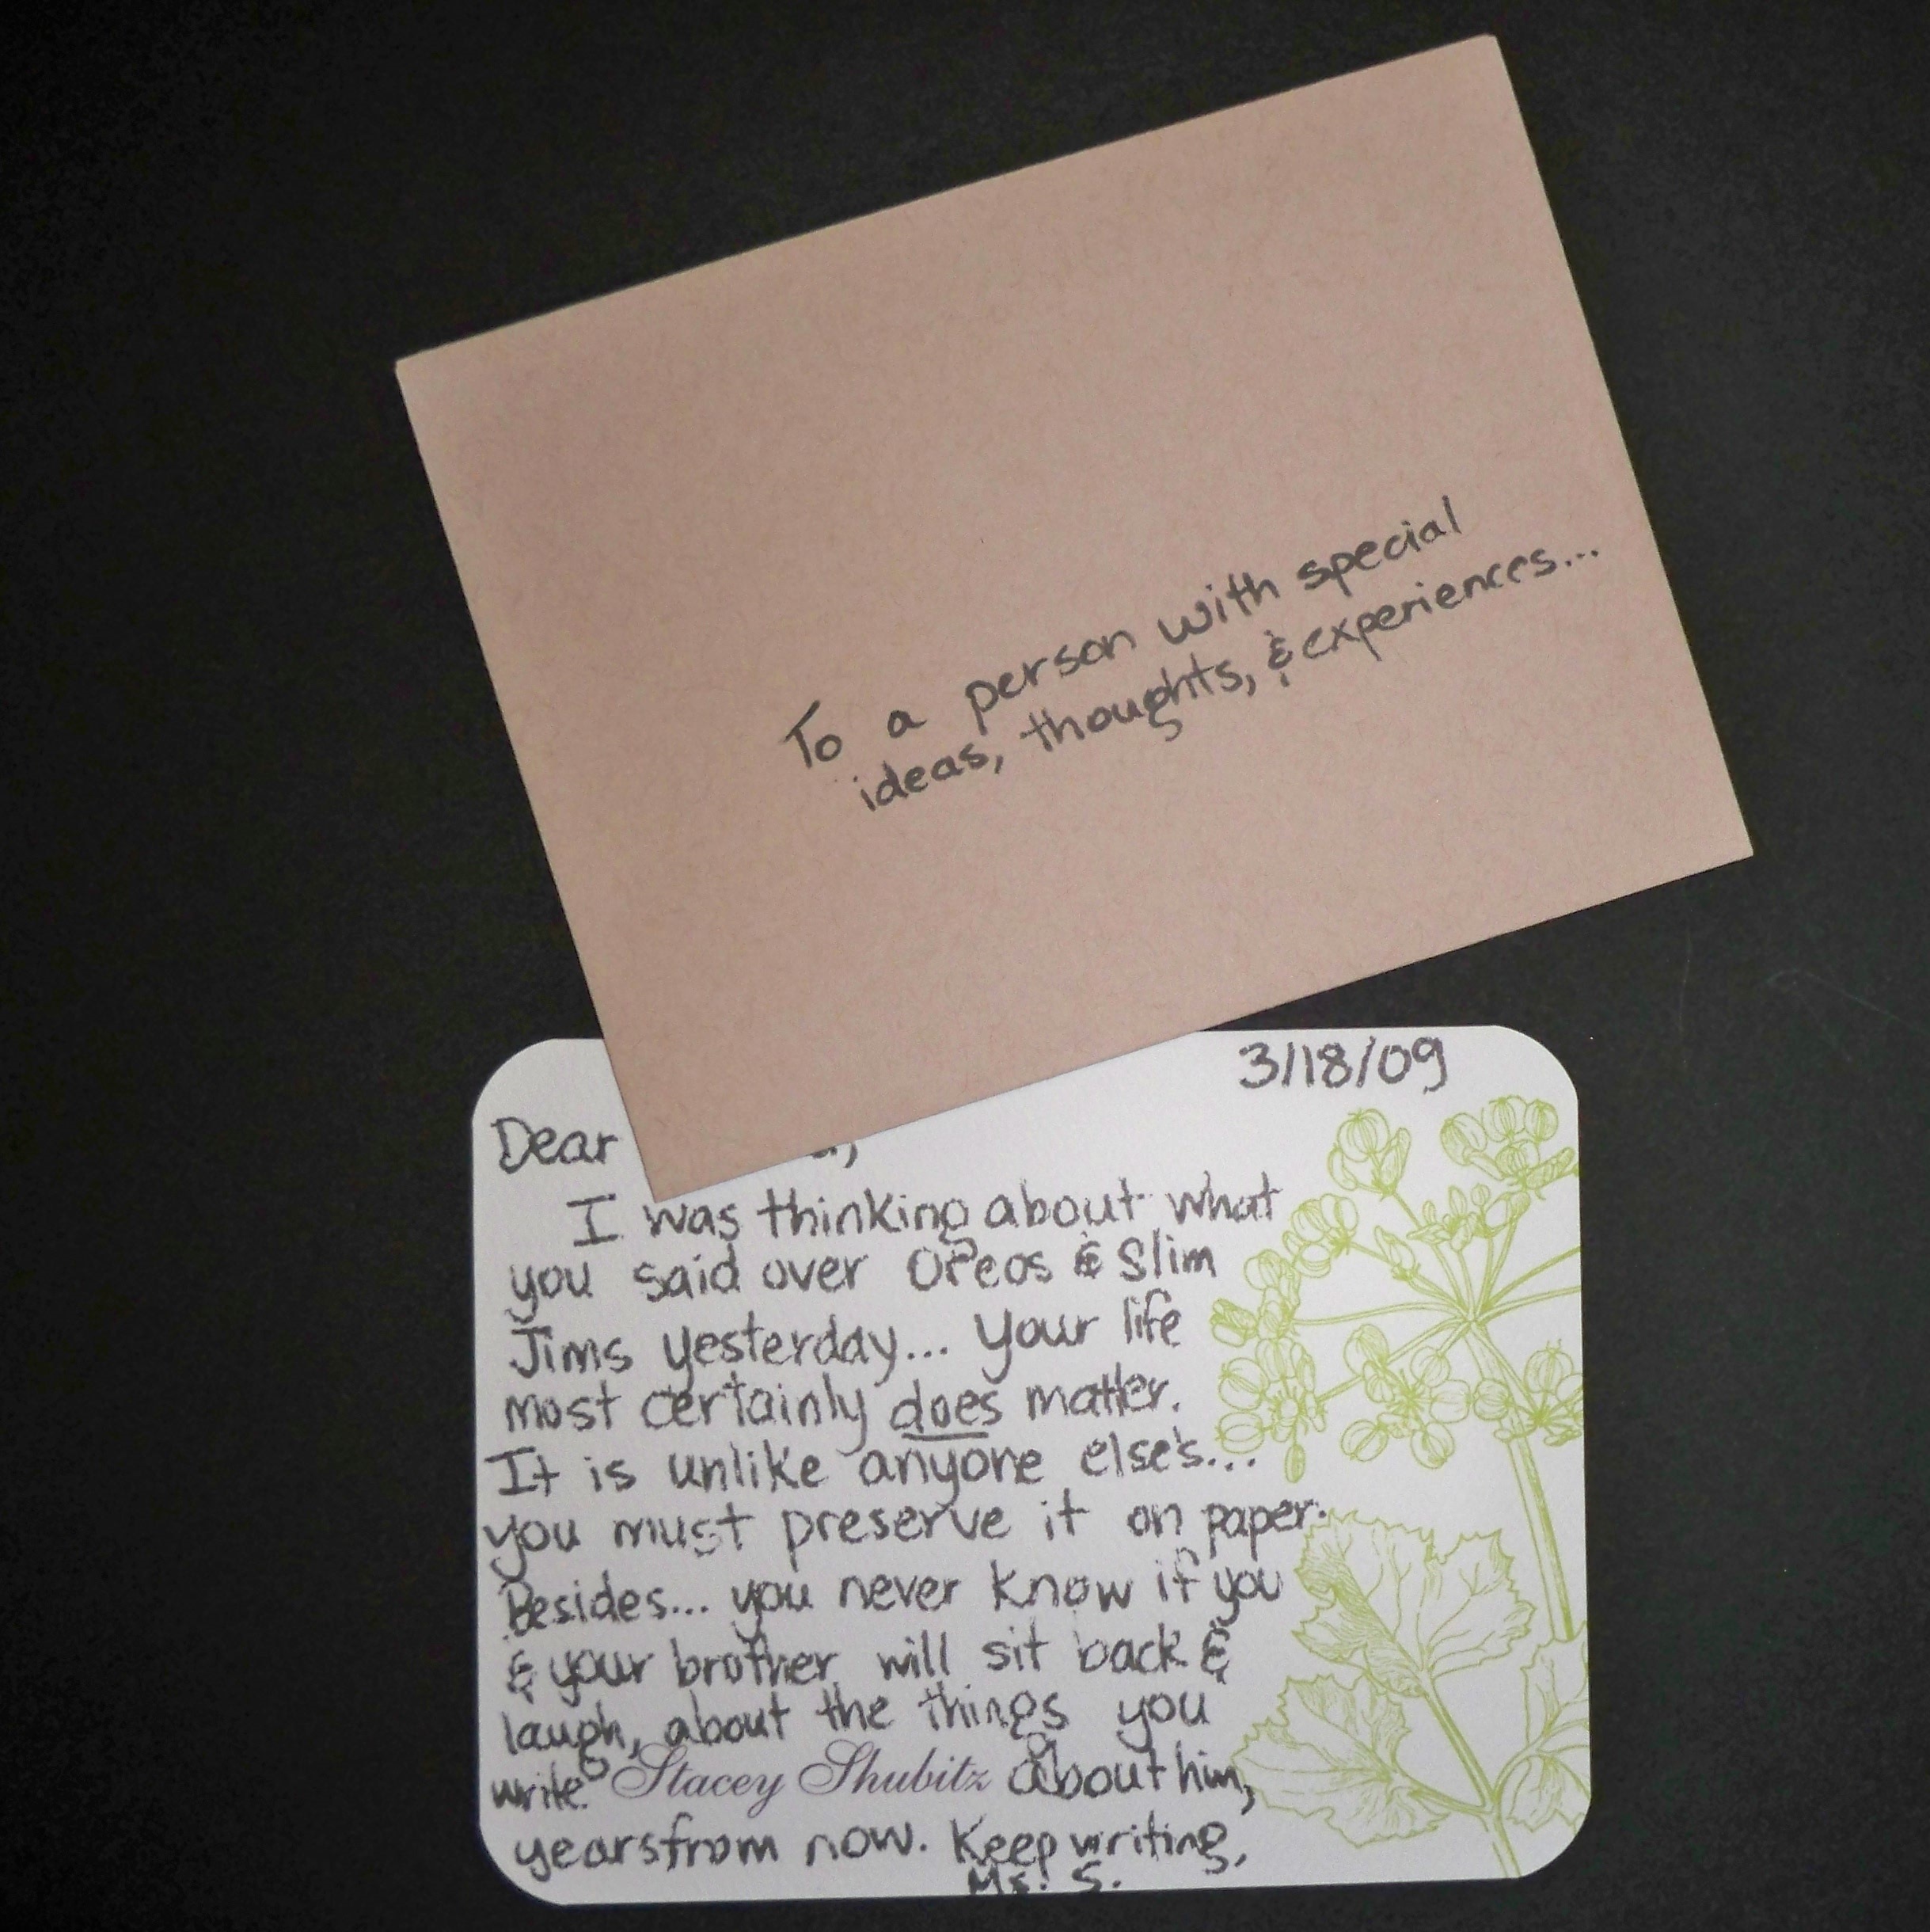 To a person with special
ideas, thoughts, & experiences...
3/18/09
Dear
I was thinking about what
you said over Oreos & Slim
Jims yesterday... your life
most certainly does matter.
It is unlike anyone else's...
you must preserve it on paper.
Besides... you never know if you
& your brother will sit back &
laugh, about the things you
write Stacey Shubitz about him,
years from now. Keep writing,
Ms. S.